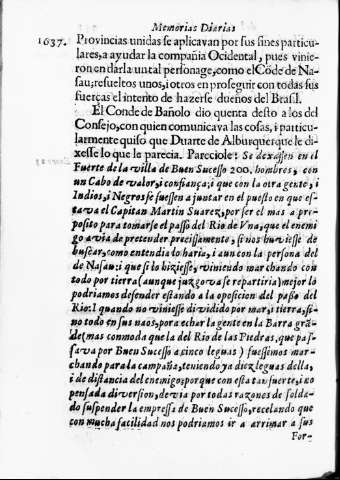 Memorias Diarias
1637. Provincias unidas se aplicavan por sus fines particu-
lares, a ayudar la compañia Ocidental, pues vinie-
ron en darla un tal personage, como el Cõde de Na-
sau; resueltos unos, i otros en proseguir con todas sus
fuerças el intento de hazerse dueños del Brasil.
El Conde de Bañolo dio quenta desto a los del
Consejo, con quien comunicava las cosas, i particu-
larmente quiso que Duarte de Alburquerque le di-
xesse lo que le parecia. Pareciole: Se dexassen en el
Fuerte de la villa de Buen Sucesso 200. hombres, con
un Cabo de valor, i confiança; i que con la otra gente, i
Indios, i Negros se fuessen a juntar en el puesto en que es-
tava el Capitan Martin Suarez, por ser el mas a pro-
posito para tomarse el passo del Rio de Vna, que el enemi
go avia de pretender precissamente, si nos huviesse de
buscar, como entendia lo haria, i aun con la persona del
de Nasau: i que si lo hiziesse, viniendo marchando con
todo por tierra (aunque juzgova se repartiria) mejor lo
podriamos defender estando a la oposicion del passo del
Rio: I quando no viniesse dividido por mar, i tierra, si-
no todo en sus naos, para echar la gente en la Barra grã-
de (mas comoda que la del Rio de las Piedras, que pas-
sava por Buen Sucesso a cinco leguas) fuessimos mar-
chando para la campaña, teniendo ya diez leguas della,
i de distancia del enemigo; porque con esta tan fuerte, i no
pensada diversion, devia por todas razones de solda-
do suspender la empressa de Buen Sucesso, recelando que
con mucha facilidad nos podriamos ir a arrimar a sus
For-